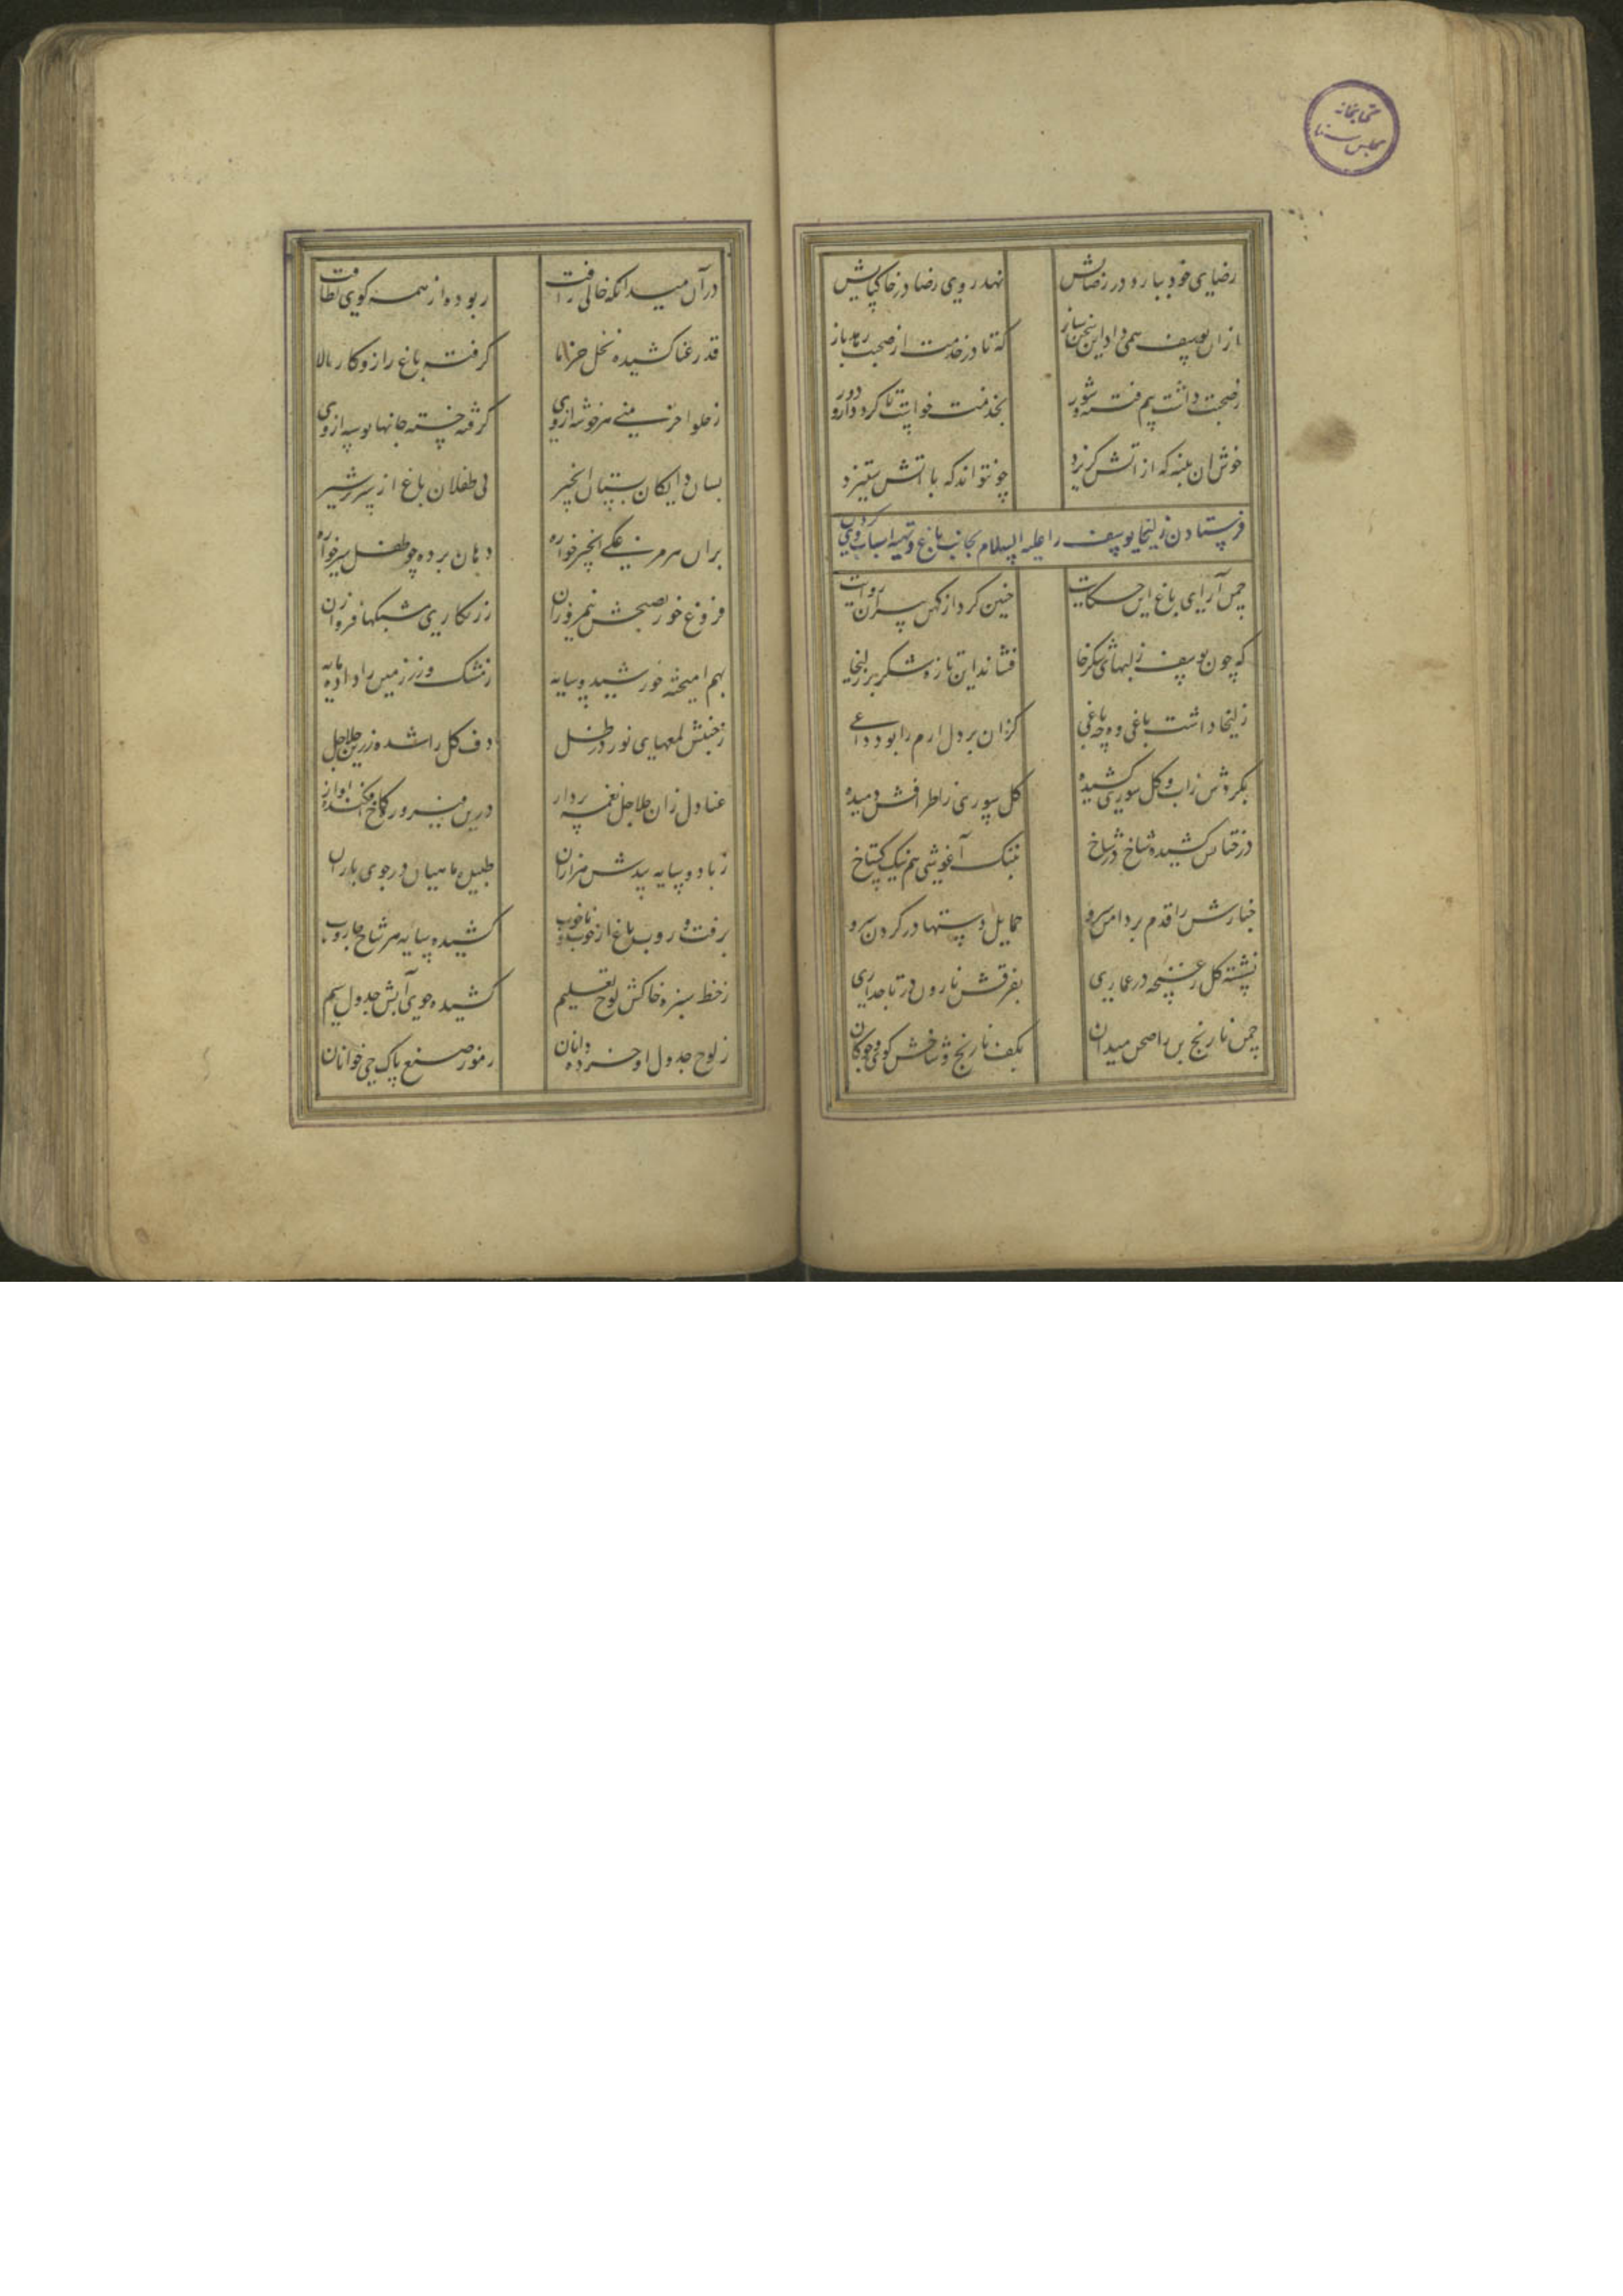 کتابخانه
مجلس سنا
رضای خود ببازد در رضایش نهد روی رضا در خاک پایش
از ان یوسف همی داد این سخن ساز که تا در خدمت از صحبت رهد باز
ز صحبت داشت بیم فتنه و شور بخدمت خواست تا کردد از و دور
خوش ان پنبه که از آتش کریزد چو نتواند که با آتش ستیزد
فرستادن زلیخا یوسف را علیه السلام بجانب باغ و تهیه اسباب کردن
چمن آرای باغ این حکایت چنین کرد از کهن پیران روایت
که چون یوسف ز لبهای شکرخا فشاند این تازه شکر بر زلیخا
زلیخا داشت باغی و چه باغی کزان بر دل ارم را بود داغی
بکردش زاب و کل سوری کشیده کل سوری ز اطرافش دمیده
درختانش کشیده شاخ در شاخ بتنک آغوشی هم نیک کستاخ
چنارش را قدم بر دامن سرو حمایل دستها در کردن سرو
نشسته کل ز غنچه در عماری بفرقش نارون در تاجداری
چمن نارنج بن را صحن میدان بکف نارنج و شاخش کوی و چوکان
در آن میدانکه خالی ز آفت ربوده از همه کوی لطافت
قد رعنا کشیده نخل خرما کرفته باغ را زو کار بالا
ز حلوا خزینه هر خوشه از وی کرفته خسته جانها توشه از وی
بسان دایکان پستان انجیر پی طفلان باغ از پر شیر
بران هر مرغکی انجیرخواره دهان برده چو طفل شیرخواره
فروغ خور بصحنش نیم روزان ز زنکاری شبکها فروزان
بهم امیخته خورشید و سایه ز مشک و زر زمین را داده مایه
ز جنبش لمعهای نور در ظل دف کل را شده زرین جلاجل
عنادل زان جلاجل نغمه پرداز درین فیروزه کاخ افکنده اواز
ز باد و سایه بیدش هزاران طپیده ماهیان در جوی باران
برفت و روب باغ از خوب و ناخوب کشیده سایه هر شاخ جاروب
ز خط سبزه خاکش لوح تعلیم کشیده جوی آبش جدول سیم
ز لوح جدول او خرده دانان رموز صنع پاک حی خوانان